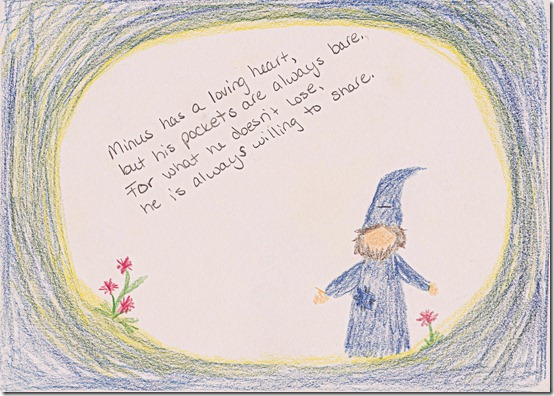 Minus has a loving heart,
but his pockets are always bare.
For what he doesn't lose,
he is always willing to share.